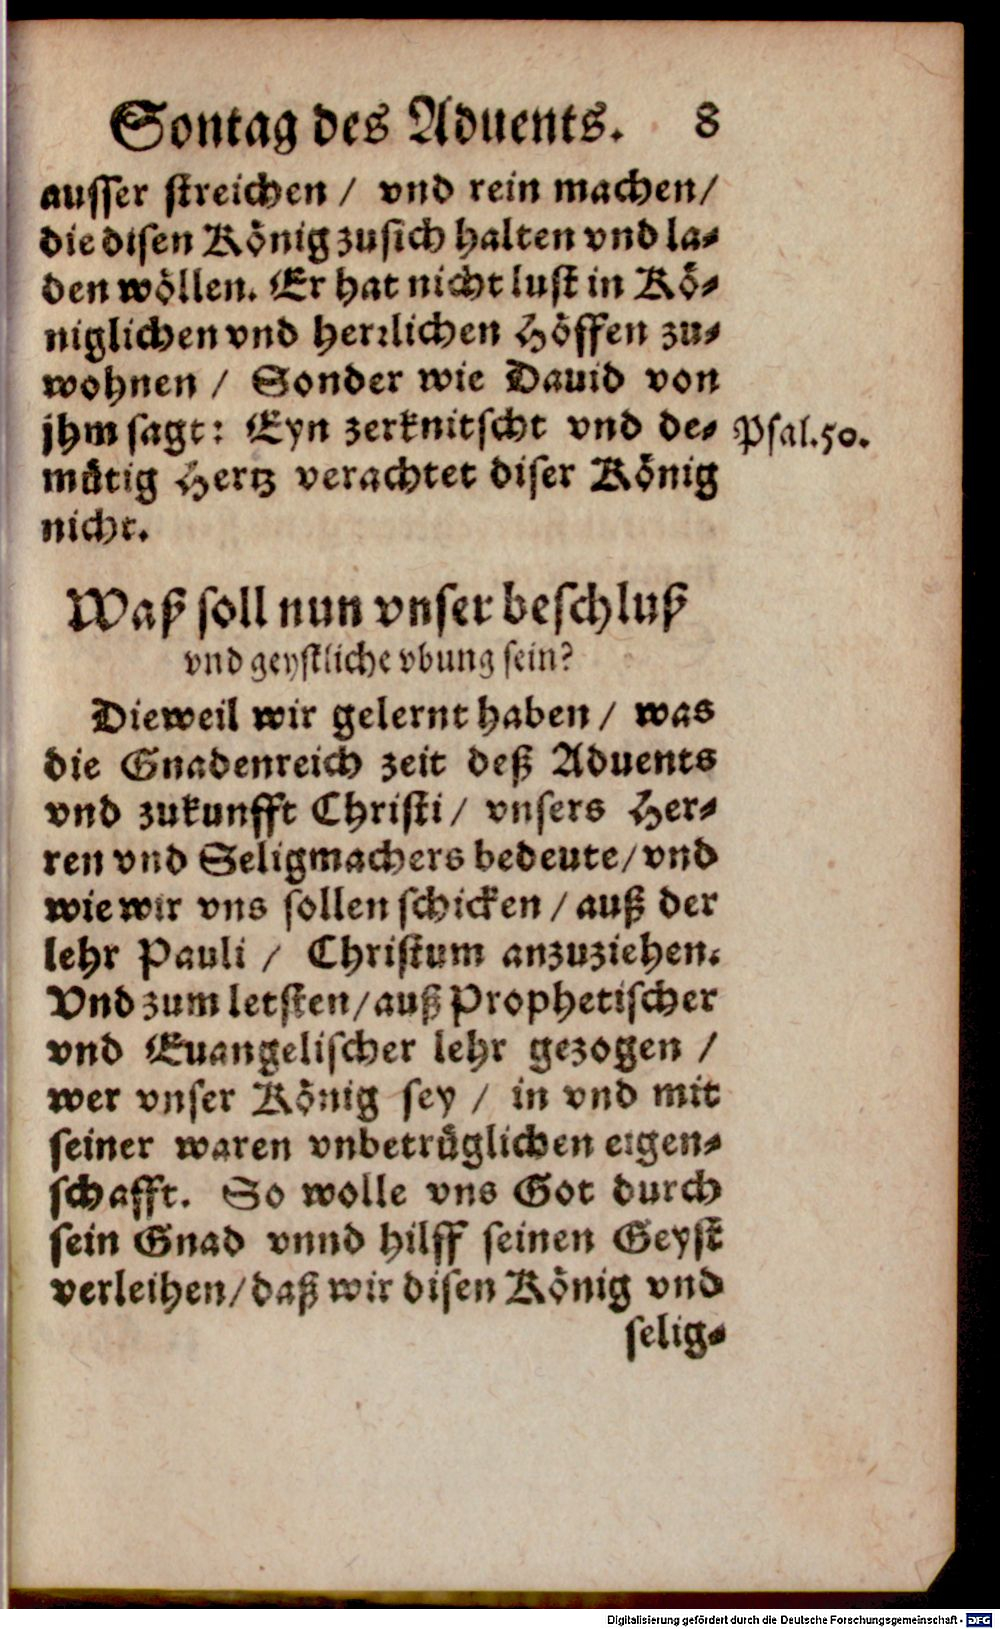 Sontag des Aduents. 8
ausser streichen / vnd rein machen/
die disen König zu sich halten vnd la⸗
den wöllen. Er hat nicht lust in Kö⸗
niglichen vnd herꝛlichen Höffen zu⸗
wohnen / Sonder wie Dauid von
jhm sagt: Eyn zerknitscht vnd de⸗ Psal.50.
mütig Hertz verachtet diser König
nicht.
Waß soll nun vnser beschluß
vnd geystliche vbung sein?
Dieweil wir gelernt haben / was
die Gnadenreich zeit deß Aduents
vnd zukunfft Christi / vnsers Her⸗
ren vnd Seligmachers bedeute/ vnd
wie wir vns sollen schicken / auß der
lehr Pauli / Christum anzuziehen.
Vnd zum letsten/ auß Prophetischer
vnd Euangelischer lehr gezogen /
wer vnser König sey / in vnd mit
seiner waren vnbetrüglichen eigen⸗
schafft. So wolle vns Got durch
sein Gnad vnnd hilff seinen Geyst
verleihen/ daß wir disen König vnd
selig⸗
Digitalisierung gefördert durch die Deutsche Forschungsgemeinschaft - DFG